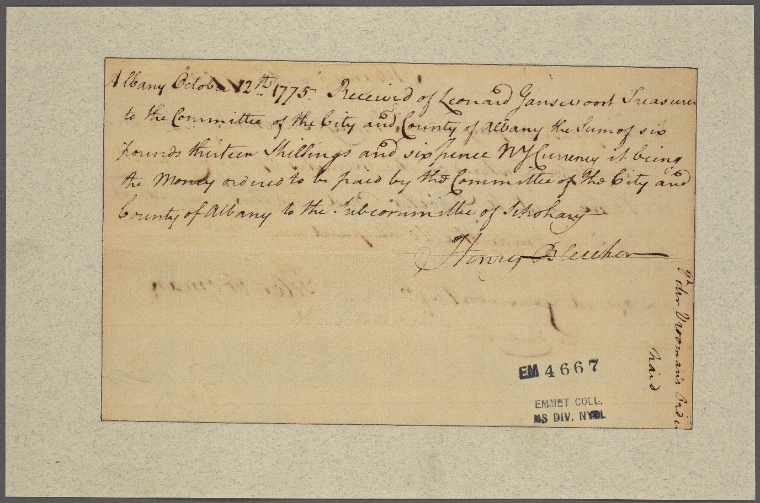 Albany October 12th 1775. Received of Leonard Gansevoort Treasurer
to the Committee of the City and County of Albany the Sum of six
pounds thirteen Shillings and six pence NY Currency it being
the Money ordered to be paid by the Committee of the City and
County of Albany to the Subcommittee of Schohary
Henry Bleecker
John Vrooman's Order
paid
EM 4667
EMMET COLL.
MS DIV. NYPL